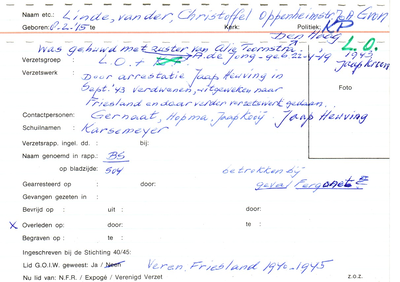 Naam etc.: Linde, van der, Christoffel Oppenheimstr. Gron
Geboren: 0-2-'15 te Kerk: Politiek: KP
Den Haag
Was gehuwd met zuster van
L.O.
Verzetsgroep L.O. + A. de Jong - geb. 22- 1943
Verzetswerk : Jaap Kroon
Door arrestatie Jaap Heuving in
Sept. '43 verdwenen, uitgeweken naar
Friesland en daar verder verzetswerk gedaan.
Foto
Contactpersonen: Gernaat, Hopma, Jaap Kooij Jaap Heuving
Schuilnamen : Karsemeyer
Verzetsrapp. ingel. dd. : bij:
Naam genoemd in rapp.: BS
op bladzijde: 504 betrokken bij
Gearresteerd op : door: geval
Gevangen gezeten in :
Bevrijd op : uit : door:
x Overleden op: door: te :
Begraven op : te :
Ingeschreven bij de Stichting 40/45:
Lid G.O.I.W. geweest: Ja / Neen Veren. Friesland 1940-1945
Nu lid van: N.F.R. / Expogé / Verenigd Verzet z.o.z.